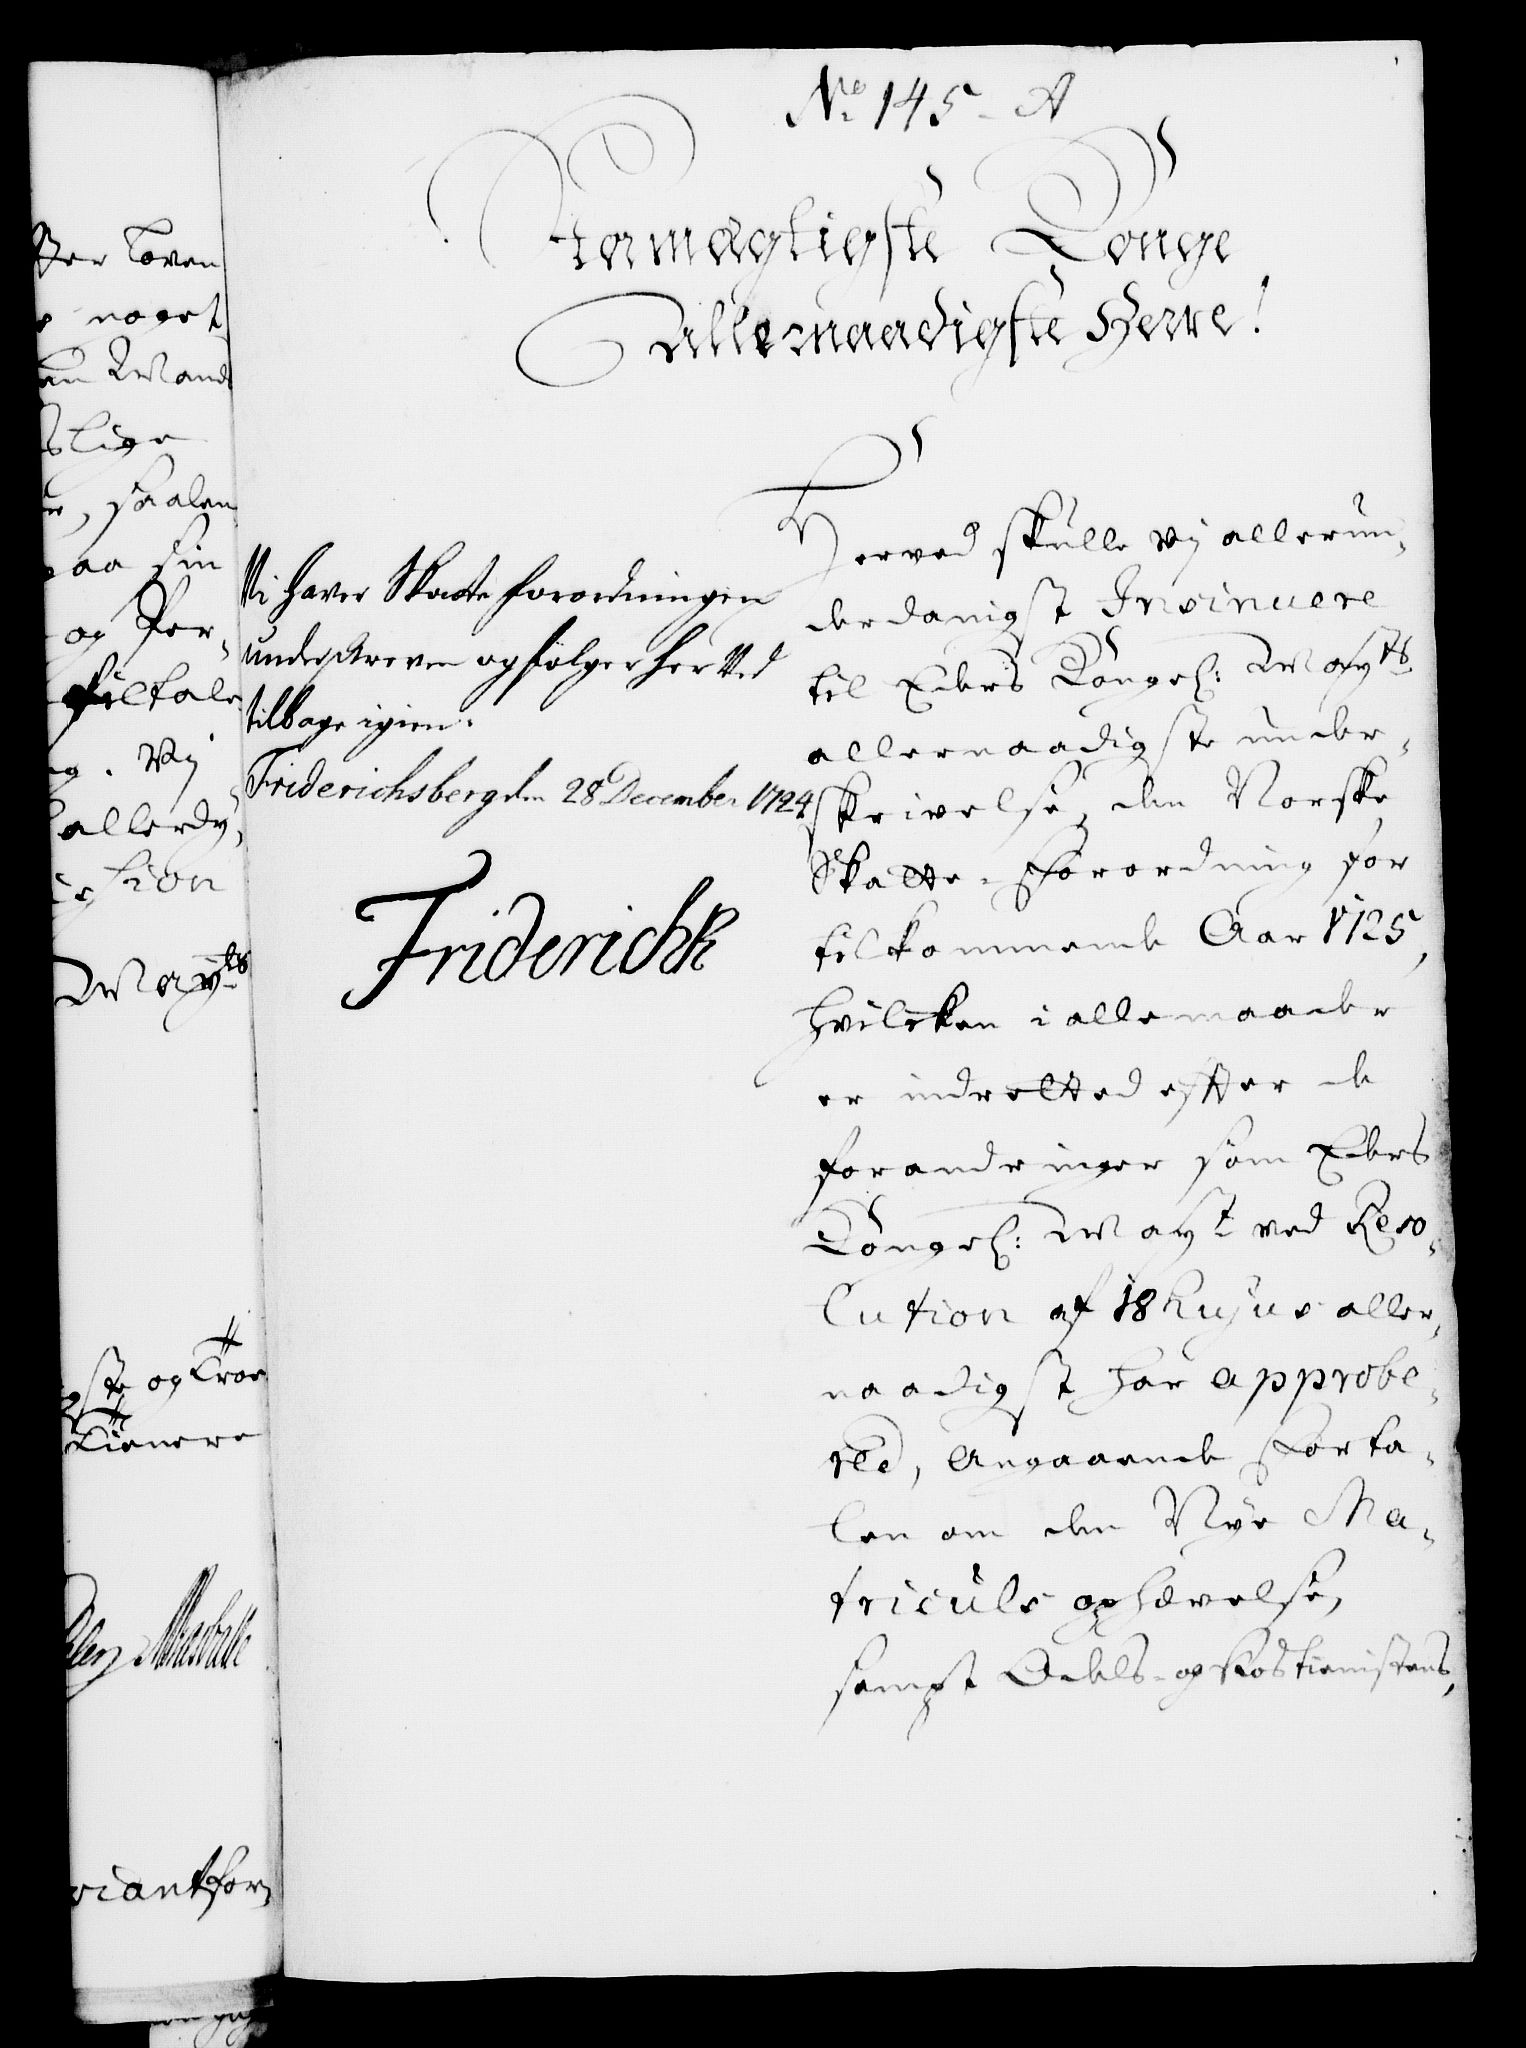 No 145. A
Stormægtigste Konge
Allernaadigste Herre!
Herved skulle vij allerun-
derdanigst Insinuere
til Eders Kongel: Mayts
allernaadigste under-
skrivelse, den Norske
Skatte-Forordning for
tilkommende Aar 1725,
hvilcken i alle maader
er indretted efter de
forandringer som Eders
Kongel: Mayt ved Reso-
lution af 18 hujus aller-
naadigst har approbe-
red, Angaaende Forta-
len om den Nye Ma-
triculs ophævelse,
sampt Odels- og Rostienistens,
Vi haver Skatte forordningen
underskreven og følger her Ved
tilbage igien.
Friderichsberg den 28 December 1724
Friderich R
ter loven
noget
Mand
slige
saalen
paa sin
og for-
tiltale
vij
allerdy-
ction
Mayts
gste og Troe
Tienere
viantfor-